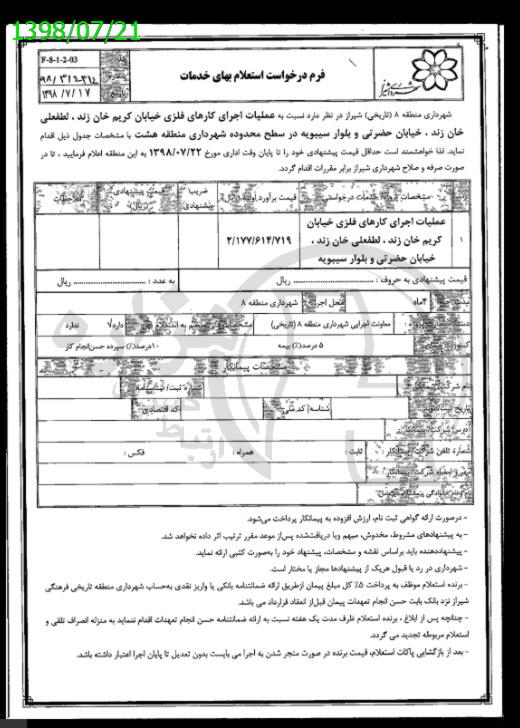 1398/07/21
F-8-1-2-03
فرم درخواست استعلام بهای خدمات
۱۳۹۸/۷/۱۷
شهرداری منطقه ۸ (تاریخی) شیراز در نظر دارد نسبت به عملیات اجرای کارهای فلزی خیابان کریم خان زند ، لطفعلی
خان زند ، خیابان حضرتی و بلوار سیبویه در سطح محدوده شهرداری منطقه هشت با مشخصات جدول ذیل اقدام
نماید. لذا خواهشمند است حداقل قیمت پیشنهادی خود را تا پایان وقت اداری مورخ ۱۳۹۸/۰۷/۲۲ به این منطقه اعلام فرمایید ، تا در
صورت صرفه و صلاح شهرداری شیراز برابر مقررات اقدام گردد.
مشخصات پروژه/خدمات درخواستی
قیمت برآورد اولیه (ریال)
ضریب پیشنهادی
قیمت پیشنهادی (ریال)
ملاحظات
۱
عملیات اجرای کارهای فلزی خیابان
کریم خان زند ، لطفعلی خان زند ،
خیابان حضرتی و بلوار سیبویه
۲/۱۷۷/۶۱۴/۷۱۹
قیمت پیشنهادی به حروف : ............ ریال
به عدد : ............ ریال
۳ماه
محل اجرا
شهرداری منطقه ۸
معاونت اجرایی شهرداری منطقه ۸ (تاریخی)
دارد√
ندارد
۵ درصد(٪) بیمه
۱۰درصد(٪) سپرده حسن‌انجام کار
مشخصات پیمانکار
نام شرکت/پیمانکار :
شماره ثبت/شناسنامه
تاریخ ثبت/تولد
شناسه/کدملی
کد اقتصادی
آدرس شرکت/پیمانکار :
شماره تلفن شرکت/پیمانکار :
ثابت :
همراه :
فکس :
مهر و امضاء شرکت/پیمانکار
- درصورت ارائه گواهی ثبت نام، ارزش افزوده به پیمانکار پرداخت می‌شود.
- به پیشنهادهای مشروط، مخدوش، مبهم ویا دریافت‌شده پس‌از موعد مقرر ترتیب اثر داده نخواهد شد.
- پیشنهاددهنده باید براساس نقشه و مشخصات، پیشنهاد خود را به‌صورت کتبی ارائه نماید.
- شهرداری در رد یا قبول هریک از پیشنهادها مجاز یا مختار است.
- برنده استعلام موظف به پرداخت ۵٪ کل مبلغ پیمان ازطریق ارائه ضمانتنامه بانکی یا واریز نقدی به‌حساب شهرداری منطقه تاریخی فرهنگی
شیراز نزد بانک بابت حسن انجام تعهدات پیمان قبل‌از انعقاد قرارداد می باشد.
- چنانچه پس از ابلاغ ، برنده استعلام ظرف مدت یک هفته نسبت به ارائه ضمانتنامه حسن انجام تعهدات اقدام ننماید به منزله انصراف تلقی و
استعلام مربوطه تجدید می گردد.
- بعد از بازگشایی پاکات استعلام، قیمت برنده در صورت منجر شدن به اجرا می بایست بدون تعدیل تا پایان اجرا اعتبار داشته باشد.